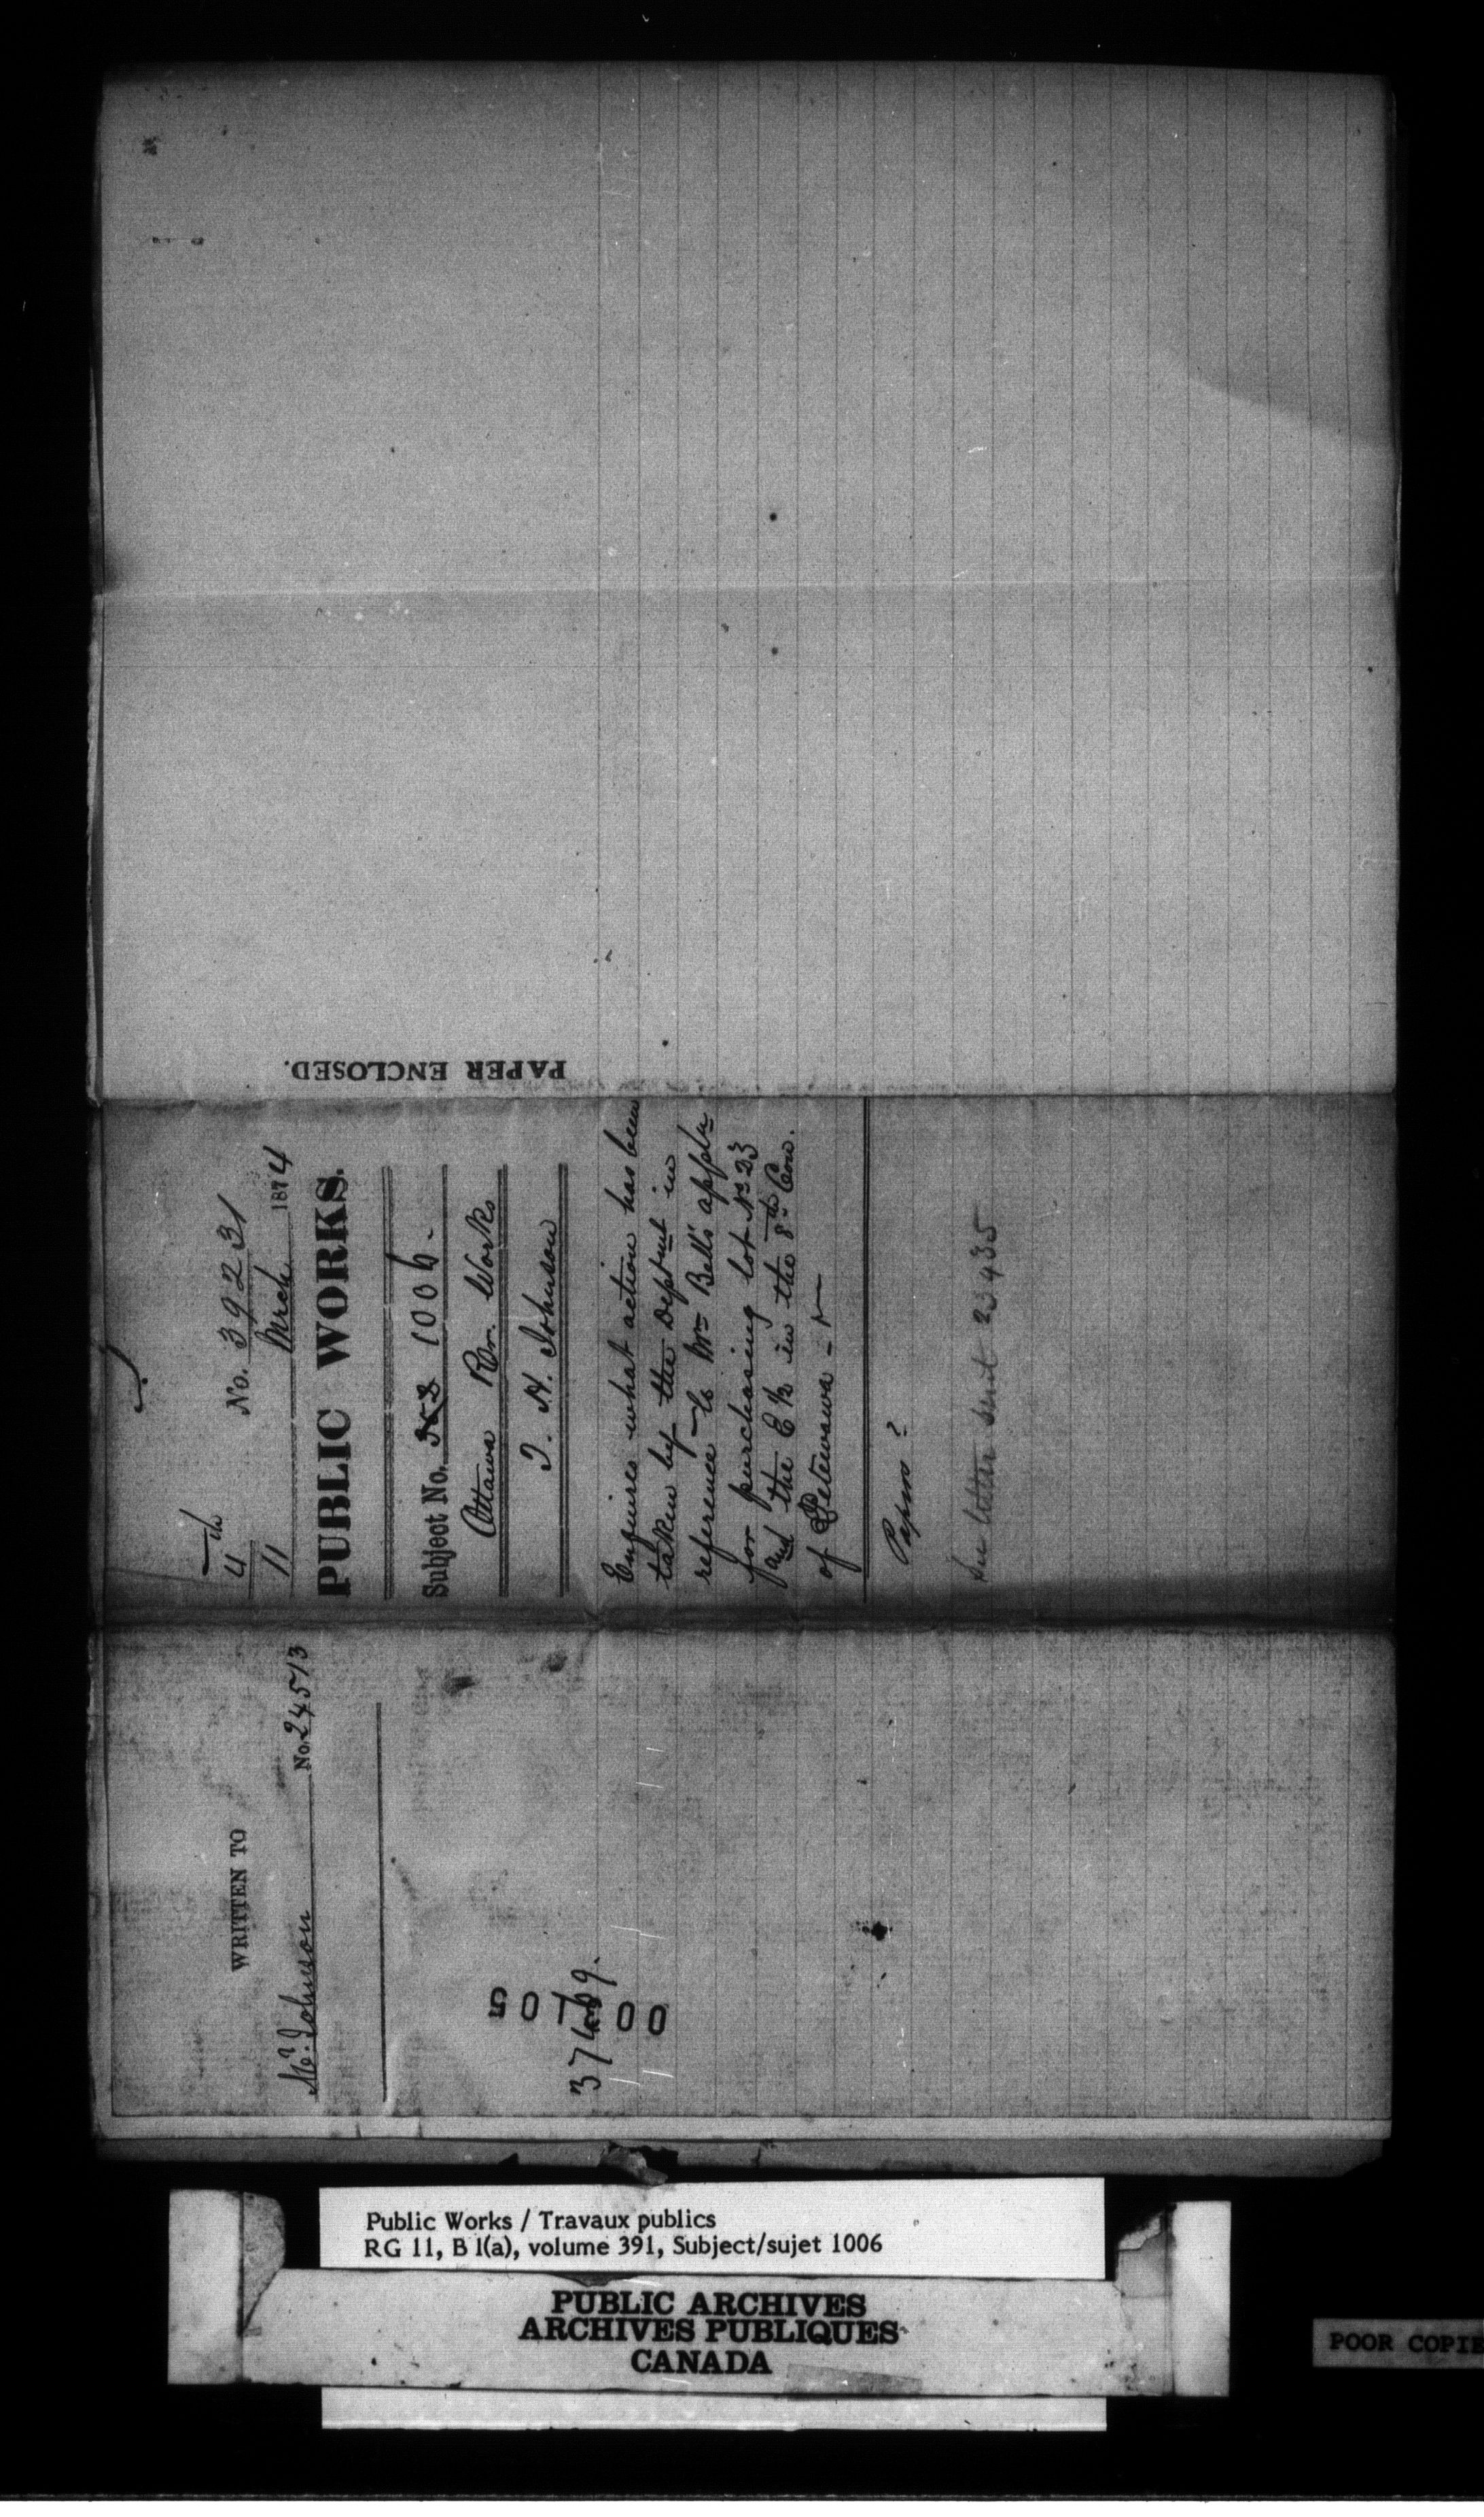 PAPER ENCLOSED.
4th
11
No. 39231
March 1874
PUBLIC WORKS.
Subject No. 1006.
Ottawa Rr. Works
T. H. Johnson
Enquires what action has been
taken by the Deptmt in
reference to Wm Bell's appln
for purchasing lot No 23
and the E ½ in the 8th Con.
of Petewawa
Papers?
See letter sent 23435
WRITTEN TO
Mr. Johnson No. 24513
37469.
Public Works / Travaux publics
RG 11, B 1(a), volume 391, Subject/sujet 1006
PUBLIC ARCHIVES
ARCHIVES PUBLIQUES
CANADA
POOR COPIE